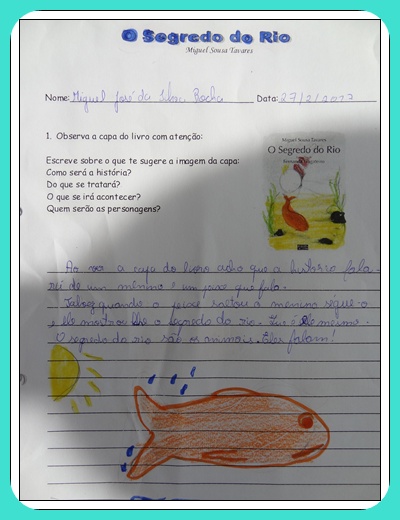 O Segredo do Rio
Miguel Sousa Tavares
Nome: Miguel José da Silva Rocha Data: 27/2/2017
1. Observa a capa do livro com atenção:
Escreve sobre o que te sugere a imagem da capa:
Como será a história?
Do que se tratará?
O que se irá acontecer?
Quem serão as personagens?
Miguel Sousa Tavares
O Segredo do Rio
Ao ver a capa do livro acho que a história fala-
rá de um menino e um peixe que fala.
Talvez quando o peixe saltou o menino segue-o
e ele mostrou-lhe o segredo do rio. é mesmo.
O segredo do rio são os animais. Eles falam!